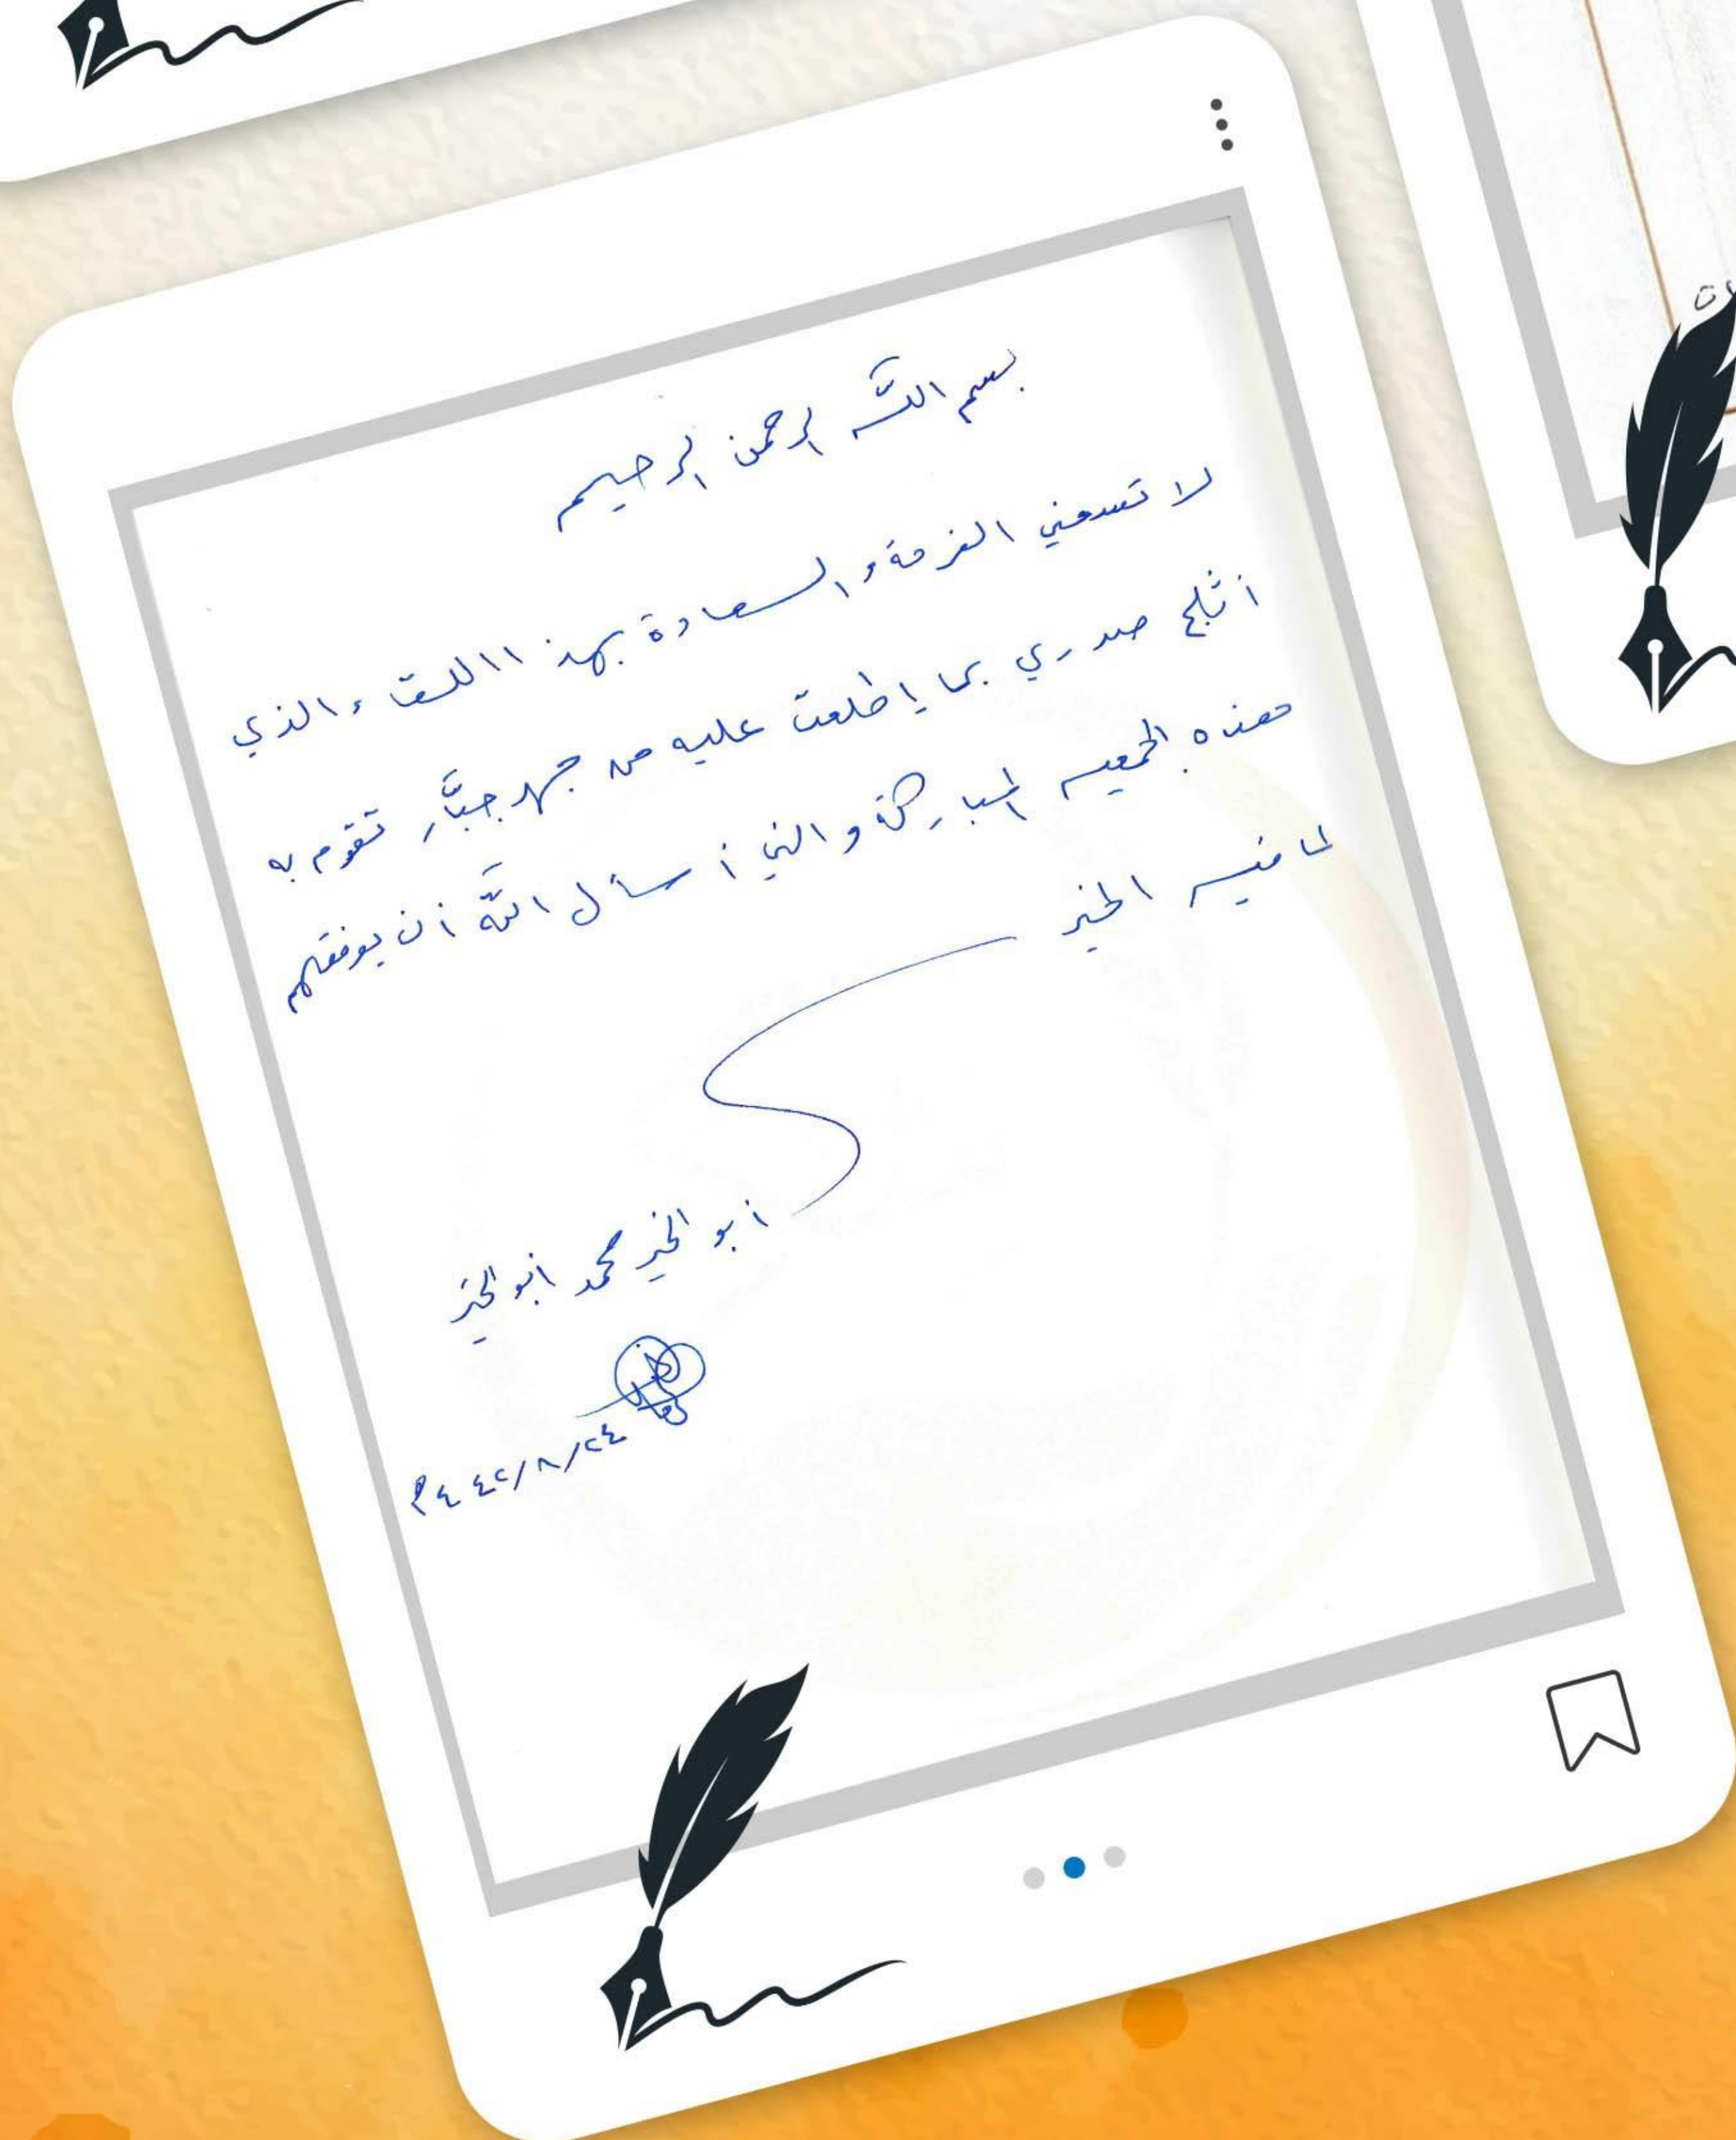 بسم الله الرحمن الرحيم
لا تسعني الفرحة والسعادة بهذا اللقاء والذي
أثلج صدري بما إطلعت عليه من جهد جبَّار تقوم به
هذه الجمعيه المباركة والتي أسأل الله أن يوفقهم
لما فيه الخير
أبو الخير محمد أبو الخير
٢٤/٨/١٤٤٢